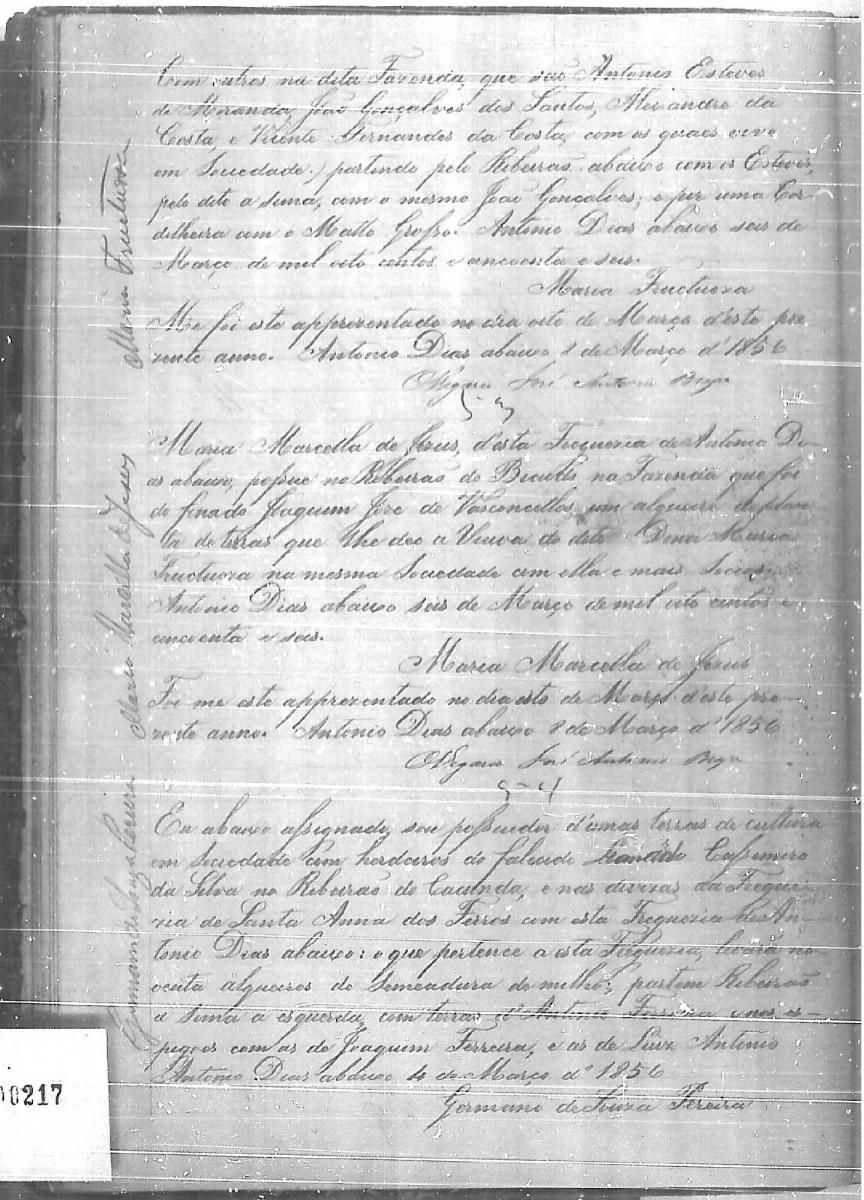 Com outros na dita Fazenda, que são Antonio Esteves
de Miranda, João Gonçalves dos Santos, Alexandre da
Costa, e Vicente Fernandes da Costa, com os quaes vive
em Sociedade.) partindo pelo Ribeirão abaixo com os Esteves,
pelo dito a sima, com o mesmo João Gonçalves; e por uma Cor-
dilheira com o Matto Grosso. Antonio Dias abaixo seis de
Março de mil oito centos e cincoenta e seis.
Maria Fructuoza
Me foi este apprezentado no dia oito de Março d'este pre
zente anno. Antonio Dias abaixo 8 de Março d'1856
O Vigario José Antonio
5-3
Maria Marcella de Jezus, d'esta Freguezia de Antonio Di-
as abaixo, possue no Ribeirão do na Fazenda que foi
do finado Joaquim Joze de Vasconcellos, um alqueire de plan
ta de terras que lhe deo a Viuva do dito Dona Maria
Fructuoza na mesma Sociedade com ella e mais Socios.
Antonio Dias abaixo seis de Março de mil oito centos e
cincoenta e seis.
Maria Marcella de Jezus
Foi me este apprezentado no dia oito de Março d'este pre-
zente anno. Antonio Dias abaixo 8 de Março d'1856
O Vigario José Antonio
5-4
Eu abaixo assignado, sou possuidor d'umas terras de cultura
em Sociedade com herdeiros do falecido Cassemiro
da Silva no Ribeirão do Cacunda, e nas divizas da Fregue
zia de Santa Anna dos Ferros com esta Freguezia de An-
tonio Dias abaixo: o que pertence a esta Freguezia, levará no-
venta alqueires de Semeadura de milho; partem Ribeirão
a sima a esquerda, com terras d'Antonio Ferreira, e nos es-
pigoes com as de Joaquim Ferreira, e as de Luiz Antonio
Antonio Dias abaixo 4 de Março d'1856
Germano de Souza Pereira
Maria Fructuoza
Maria Marcella de Jesus
Germano de Souza Pereira
00217